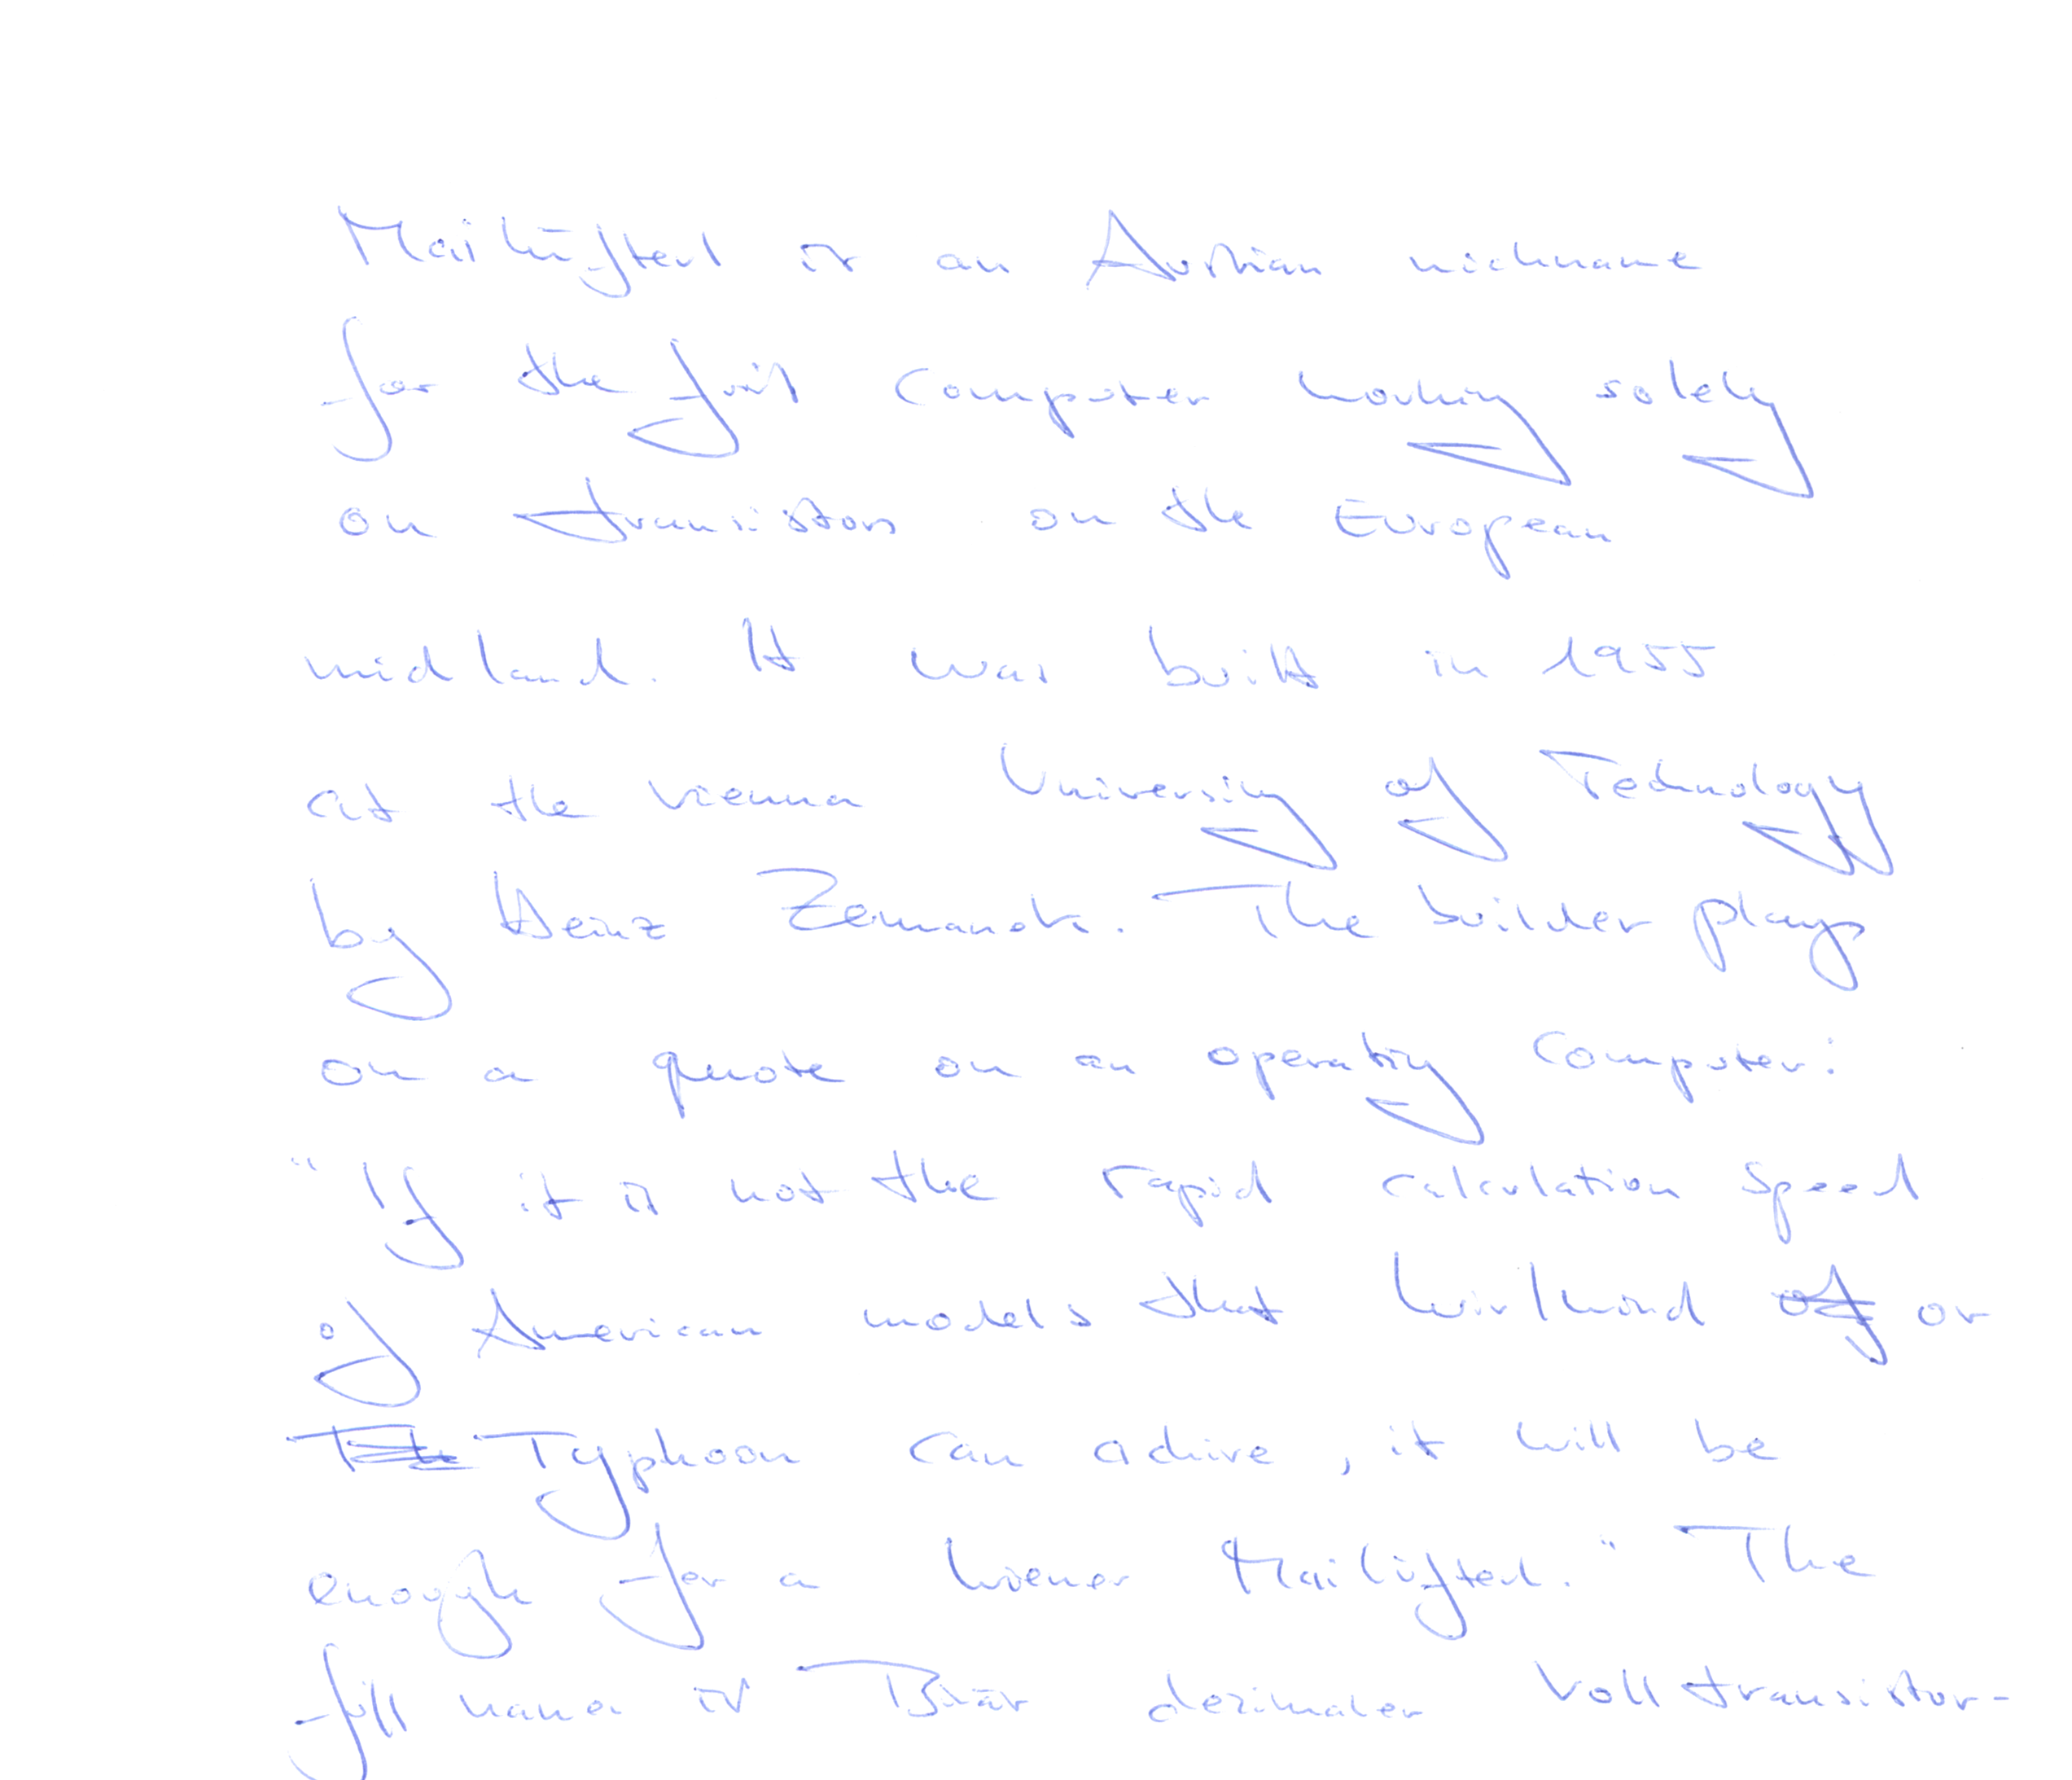 Mailüfterl is an Austrian nickname
for the first computer working solely
on transistors on the European
midland. It was built in 1955
at the Vienna University of Technology
by Heinz Zemanek. The builder plays
on a quote on an operating computer:
"If it is not the rapid calculation speed
of American models that Wirlwind of or
Typhoon can achive, it will be
enough for a Wiener Mailüfterl." The
full name is Binär dezimaler Volltransistor-